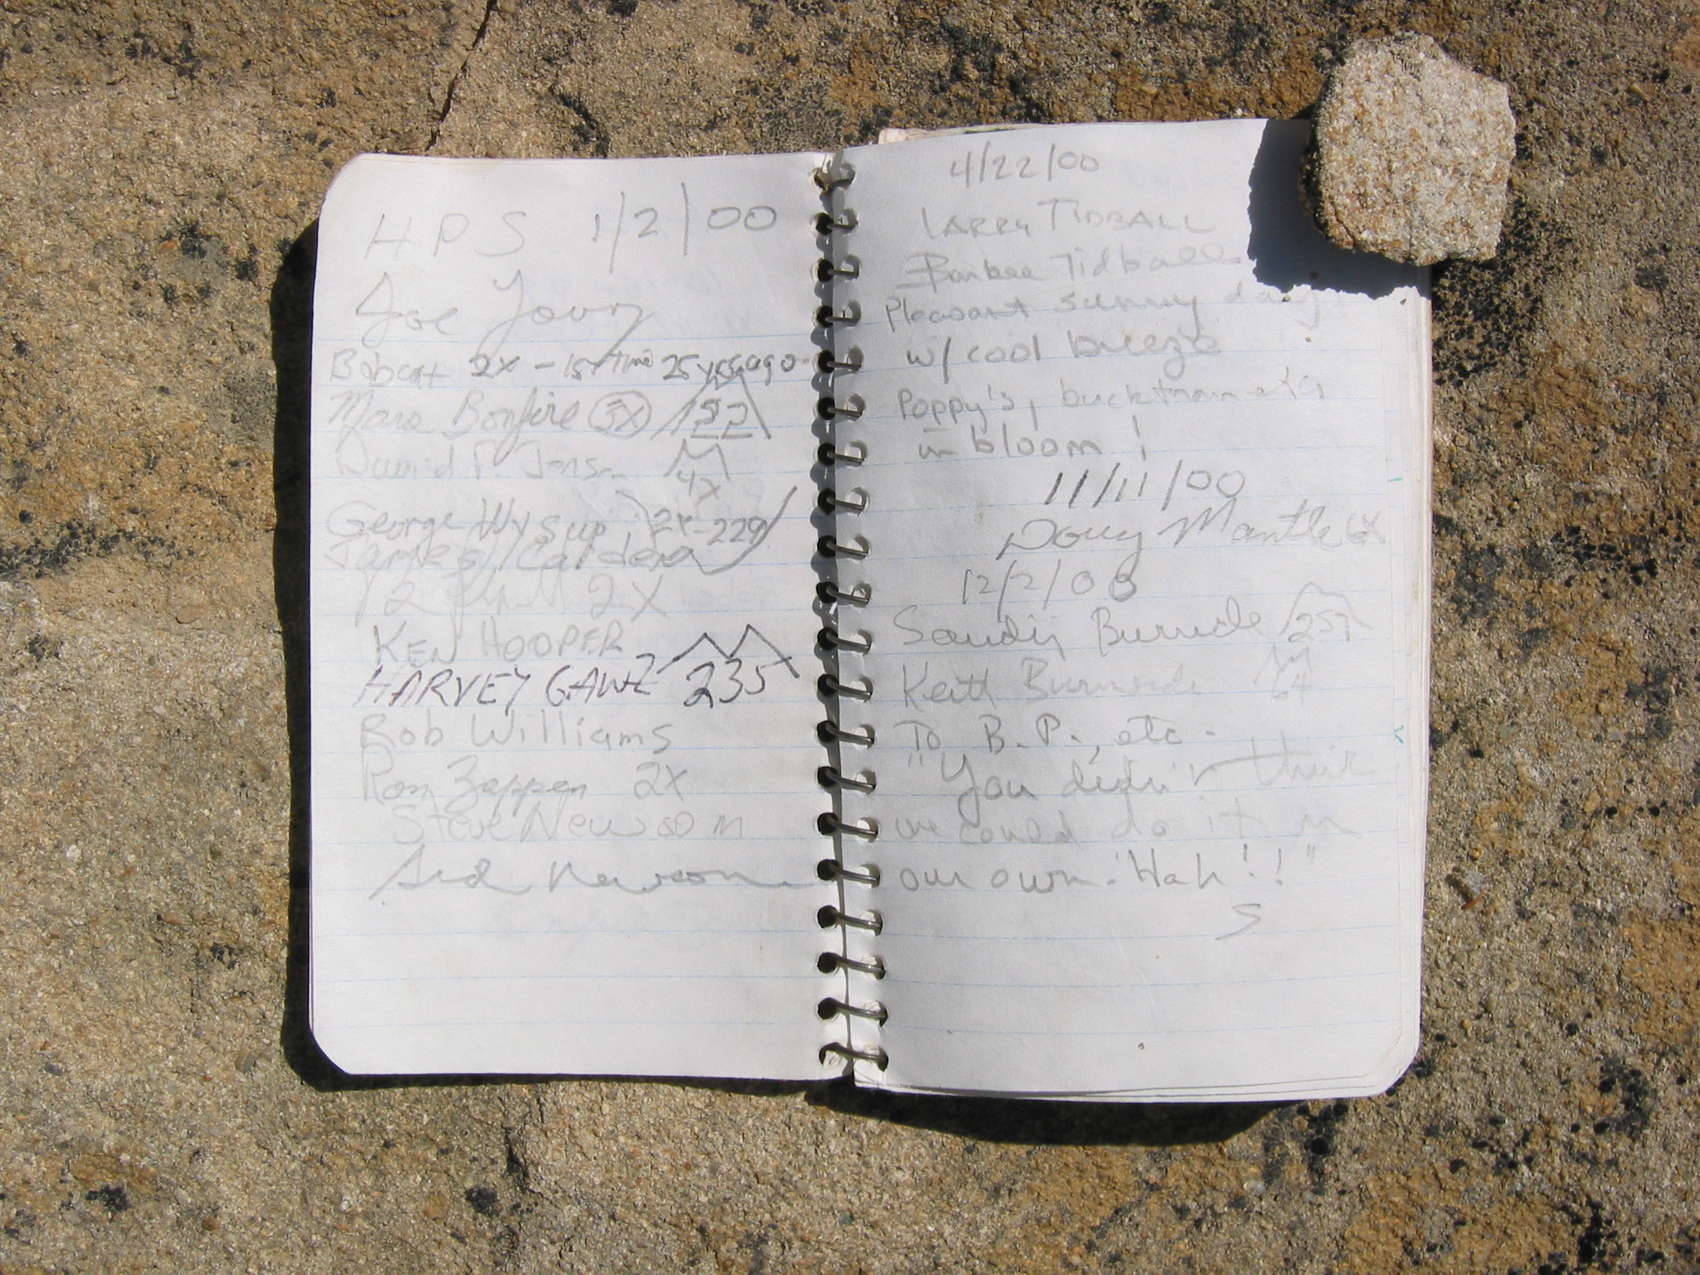 HPS 1/2/00
Joe Young
Bobcat 2X - 1st time 25 yrs ago
Bonfire 3X 152
David 4X
George Wysup 2X-229
James Carden
2X
KEN HOOPER
HARVEY GANZ 235
Rob Williams
Ron Zappen 2X
Steve Newsom
Newsom
4/22/00
LARRY TIDBALL
Barbee Tidball
Pleasant sunny day
w/ cool breeze
Poppy's,
in bloom!
11/11/00
Doug Mantle 6X
12/2/00
Sandy Burnside 257
Keith Burnside
To B.P., etc.
"You didn't think
we could do it on
our own. Hah!!"
S